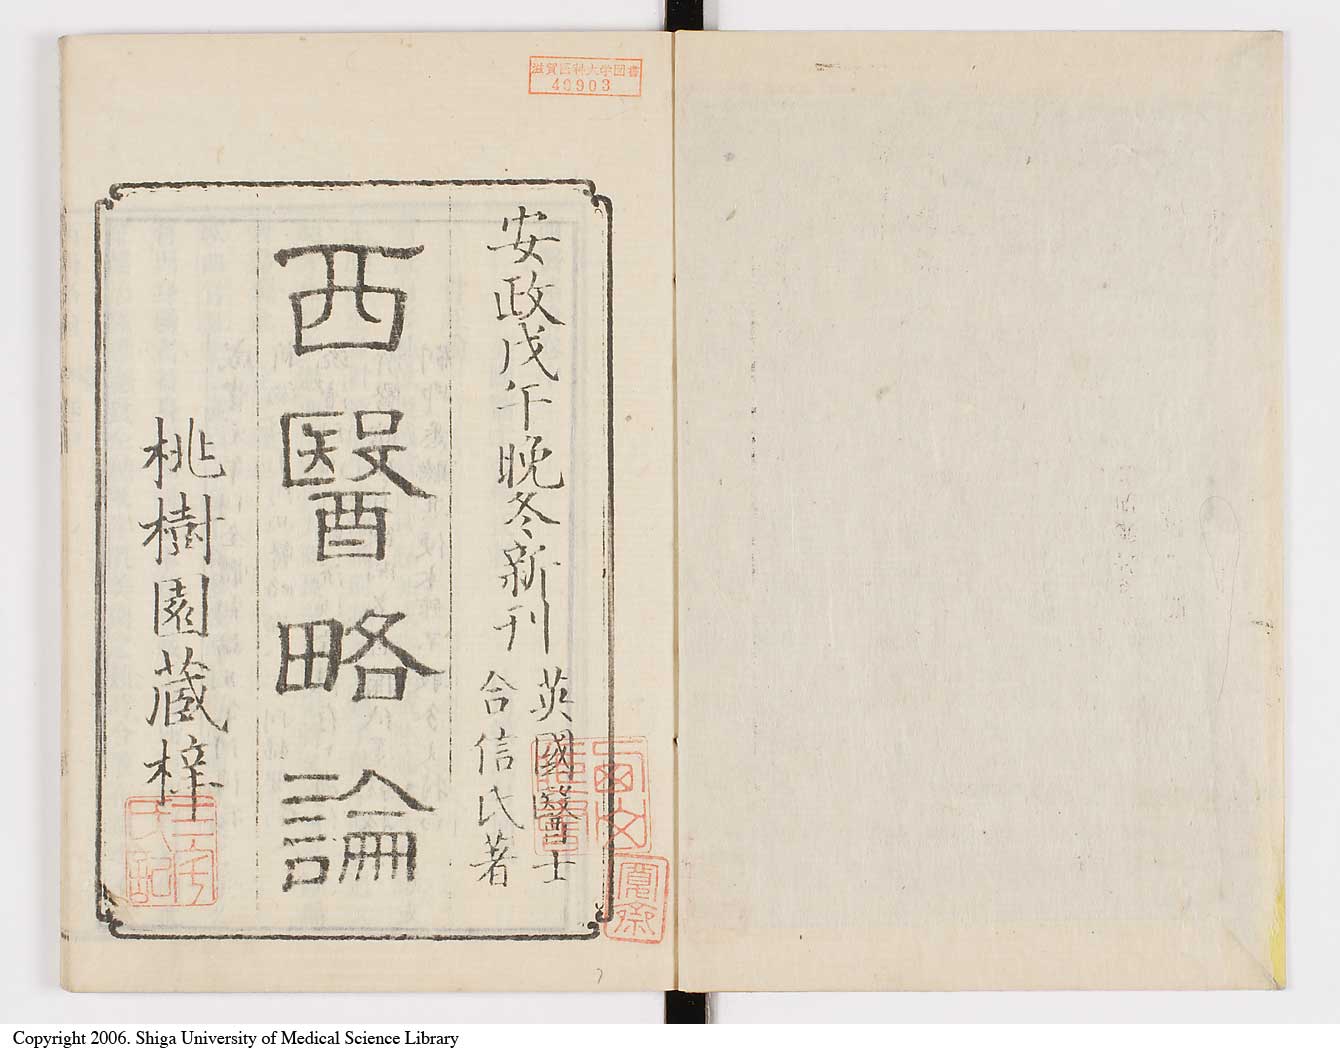 滋賀医科大学図書
49903
安政戊午晩冬新刊
英國醫士
合信氏著
西醫略論
桃樹園蔵梓
Copyright 2006. Shiga University of Medical Science Library